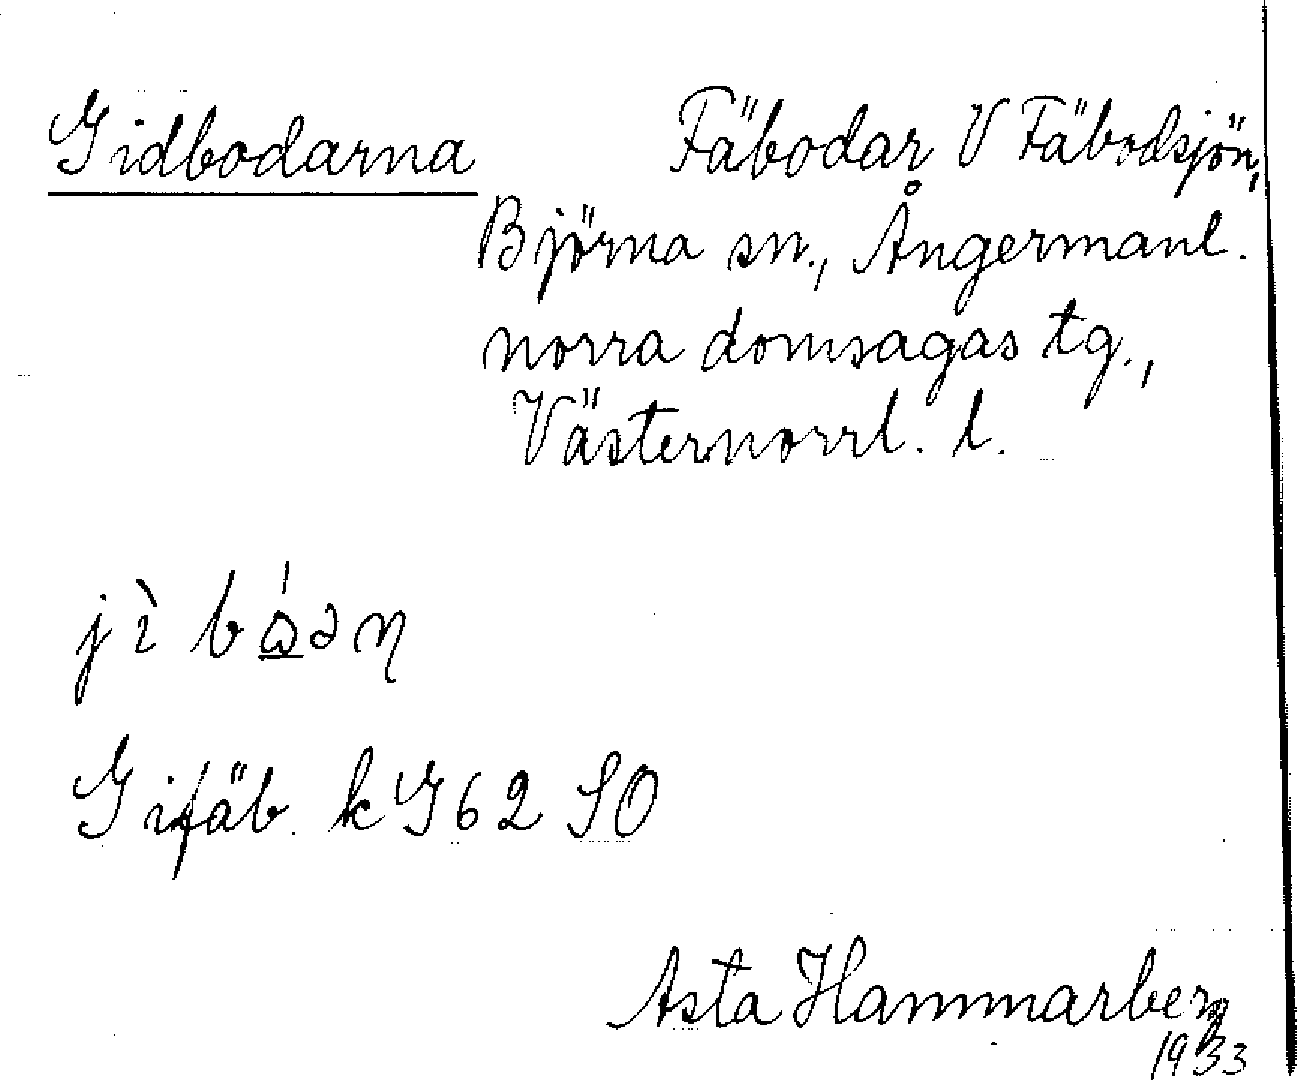 Gidbodarna Fäbodar V Fäbodsjön,
Björna sn., Ångermanl.
norra domsagas tg.,
Västernorrl. l.
Gifäb. k G62 SO
Asta Hammarberg
1933